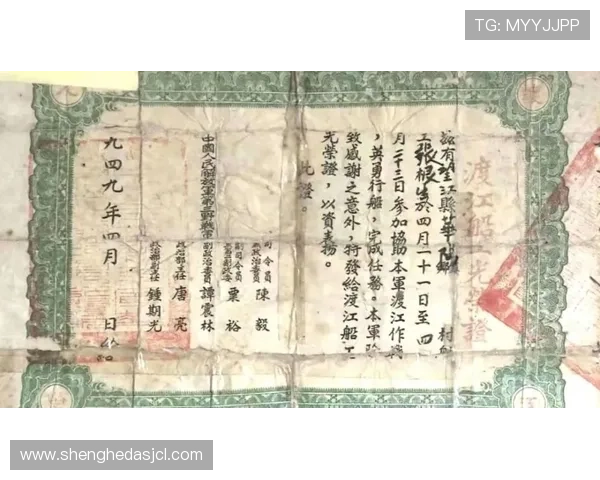 TG: MYYJJPP
渡江船光榮證
茲有望江縣華陽鄉 村船
工張根生於四月二十一日至四
月二十三日參加協助本軍渡江作戰
，英勇行船，完成任務。本軍除
致感謝之意外，特發給渡江船工
光榮證，以資表揚。
此證。
中國人民解放軍第三野戰軍
司令員
兼政治委員 陳毅
副司令員 粟裕
副政治委員 譚震林
政治部主任 唐亮
政治部副主任 鍾期光
九四九年四月 日
www.shenghedasjcl.com